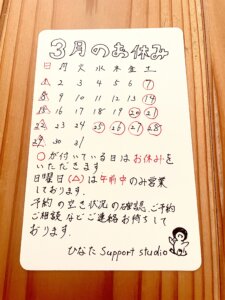 3月のお休み
日 月 火 水 木 金 土
1 2 3 4 5 6 7
8 9 10 11 12 13 14
15 16 17 18 19 20 21
22 23 24 25 26 27 28
29 30 31
○が付いている日はお休みを
いただきます。
日曜日(△)は午前中のみ営業
しております。
予約の空き状況の確認、ご予約
ご相談などご連絡お待ちして
おります。
ひなた Support studio